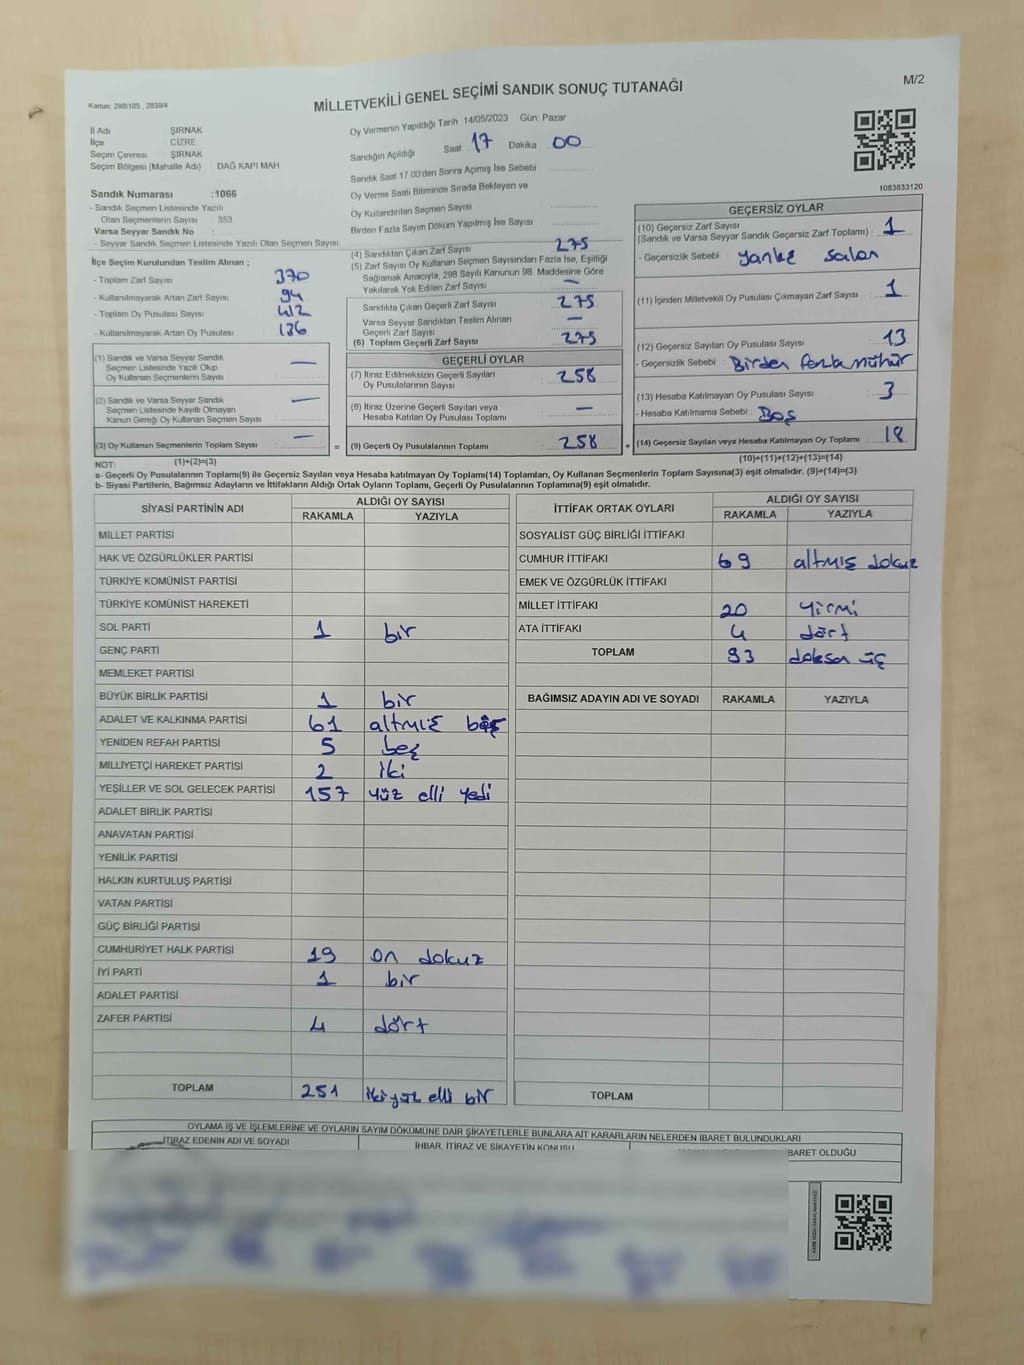 Kanun: 298/105 , 2839/4
MİLLETVEKİLİ GENEL SEÇİMİ SANDIK SONUÇ TUTANAĞI
M/2
İl Adı ŞIRNAK
İlçe CİZRE
Seçim Çevresi ŞIRNAK
Seçim Bölgesi (Mahalle Adı) DAĞ KAPI MAH
Sandık Numarası :1066
- Sandık Seçmen Listesinde Yazılı
Olan Seçmenlerin Sayısı 353
Varsa Seyyar Sandık No :
- Seyyar Sandık Seçmen Listesinde Yazılı Olan Seçmen Sayısı:
Oy Vermenin Yapıldığı Tarih 14/05/2023 Gün: Pazar
Sandığın Açıldığı Saat 17 Dakika 00
Sandık Saat 17.00'den Sonra Açılmış İse Sebebi
Oy Verme Saati Bitiminde Sırada Bekleyen ve
Oy Kullandırılan Seçmen Sayısı
Birden Fazla Sayım Döküm Yapılmış İse Sayısı
1083833120
İlçe Seçim Kurulundan Teslim Alınan ;
- Toplam Zarf Sayısı 370
- Kullanılmayarak Artan Zarf Sayısı 94
- Toplam Oy Pusulası Sayısı 412
- Kullanılmayarak Artan Oy Pusulası 136
(1) Sandık ve Varsa Seyyar Sandık
Seçmen Listesinde Yazılı Olup
Oy Kullanan Seçmenlerin Sayısı —
(2) Sandık ve Varsa Seyyar Sandık
Seçmen Listesinde Kayıtlı Olmayan
Kanun Gereği Oy Kullanan Seçmen Sayısı —
(3) Oy Kullanan Seçmenlerin Toplam Sayısı —
(4) Sandıktan Çıkan Zarf Sayısı 275
(5) Zarf Sayısı Oy Kullanan Seçmen Sayısından Fazla İse, Eşitliği
Sağlamak Amacıyla, 298 Sayılı Kanunun 98. Maddesine Göre
Yakılarak Yok Edilen Zarf Sayısı —
Sandıkta Çıkan Geçerli Zarf Sayısı 275
Varsa Seyyar Sandıktan Teslim Alınan
Geçerli Zarf Sayısı —
(6) Toplam Geçerli Zarf Sayısı 275
GEÇERLİ OYLAR
(7) İtiraz Edilmeksizin Geçerli Sayılan
Oy Pusulalarının Sayısı 258
(8) İtiraz Üzerine Geçerli Sayılan veya
Hesaba Katılan Oy Pusulası Toplamı —
= (9) Geçerli Oy Pusulalarının Toplamı 258 +
GEÇERSİZ OYLAR
(10) Geçersiz Zarf Sayısı
(Sandık ve Varsa Seyyar Sandık Geçersiz Zarf Toplamı) 1
- Geçersizlik Sebebi
(11) İçinden Milletvekili Oy Pusulası Çıkmayan Zarf Sayısı 1
(12) Geçersiz Sayılan Oy Pusulası Sayısı 13
- Geçersizlik Sebebi Birden fazla mühür
(13) Hesaba Katılmayan Oy Pusulası Sayısı 3
- Hesaba Katılmama Sebebi : Boş
(14) Geçersiz Sayılan veya Hesaba Katılmayan Oy Toplamı 18
NOT: (1)+(2)=(3)
(10)+(11)+(12)+(13)=(14)
a- Geçerli Oy Pusulalarının Toplamı(9) ile Geçersiz Sayılan veya Hesaba katılmayan Oy Toplamı(14) Toplamları, Oy Kullanan Seçmenlerin Toplam Sayısına(3) eşit olmalıdır. (9)+(14)=(3)
b- Siyasi Partilerin, Bağımsız Adayların ve İttifakların Aldığı Ortak Oyların Toplamı, Geçerli Oy Pusulalarının Toplamına(9) eşit olmalıdır.
SİYASİ PARTİNİN ADI ALDIĞI OY SAYISI
RAKAMLA YAZIYLA
MİLLET PARTİSİ
HAK VE ÖZGÜRLÜKLER PARTİSİ
TÜRKİYE KOMÜNİST PARTİSİ
TÜRKİYE KOMÜNİST HAREKETİ
SOL PARTİ 1 bir
GENÇ PARTİ
MEMLEKET PARTİSİ
BÜYÜK BİRLİK PARTİSİ 1 bir
ADALET VE KALKINMA PARTİSİ 61 altmış
YENİDEN REFAH PARTİSİ 5 beş
MİLLİYETÇİ HAREKET PARTİSİ 2 iki
YEŞİLLER VE SOL GELECEK PARTİSİ 157 yüz elli yedi
ADALET BİRLİK PARTİSİ
ANAVATAN PARTİSİ
YENİLİK PARTİSİ
HALKIN KURTULUŞ PARTİSİ
VATAN PARTİSİ
GÜÇ BİRLİĞİ PARTİSİ
CUMHURİYET HALK PARTİSİ 19 on dokuz
İYİ PARTİ 1 bir
ADALET PARTİSİ
ZAFER PARTİSİ 4 dört
TOPLAM 251 ikiyüz elli bir
İTTİFAK ORTAK OYLARI ALDIĞI OY SAYISI
RAKAMLA YAZIYLA
SOSYALİST GÜÇ BİRLİĞİ İTTİFAKI
CUMHUR İTTİFAKI 69 altmış dokuz
EMEK VE ÖZGÜRLÜK İTTİFAKI
MİLLET İTTİFAKI 20 yirmi
ATA İTTİFAKI 4 dört
TOPLAM 93 doksan üç
BAĞIMSIZ ADAYIN ADI VE SOYADI RAKAMLA YAZIYLA
TOPLAM
OYLAMA İŞ VE İŞLEMLERİNE VE OYLARIN SAYIM DÖKÜMÜNE DAİR ŞİKAYETLERLE BUNLARA AİT KARARLARIN NELERDEN İBARET BULUNDUKLARI
İTİRAZ EDENİN ADI VE SOYADI İHBAR, İTİRAZ VE ŞİKAYETİN KONUSU İBARET OLDUĞU